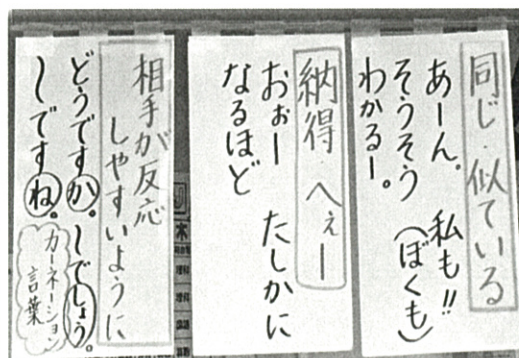 同じ・似ている
あーん。 私も!!
そうそう (ぼくも)
わかるー。
納得・へぇー
おぉー たしかに
なるほど
相手が反応
しやすいように
どうですか。 〜でしょう。
〜ですね。
カーネーション
言葉